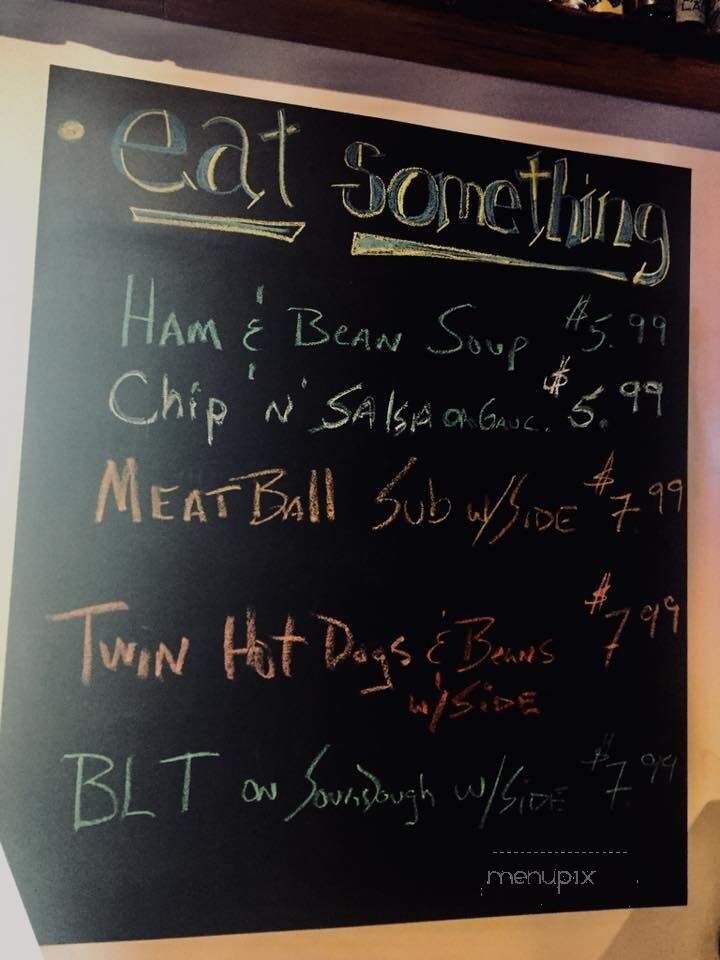 eat something
HAM & BEAN Soup $5.99
Chip 'N' SAlSA OR GUAC. $5.99
MEATBAll Sub w/SIDE $7.99
TWIN Hot Dogs & BEANS $7.99
w/SIDE
BLT ON SOURDOugh w/SIDE $7.99
menupix